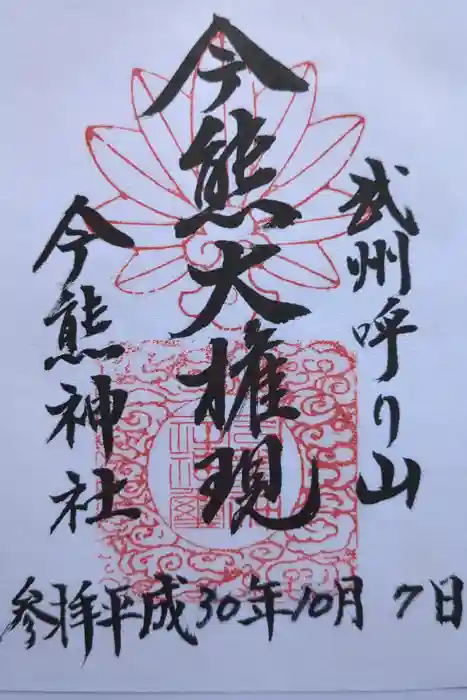 武州呼り山
今熊大権現
今熊神社
参拝平成30年10月7日